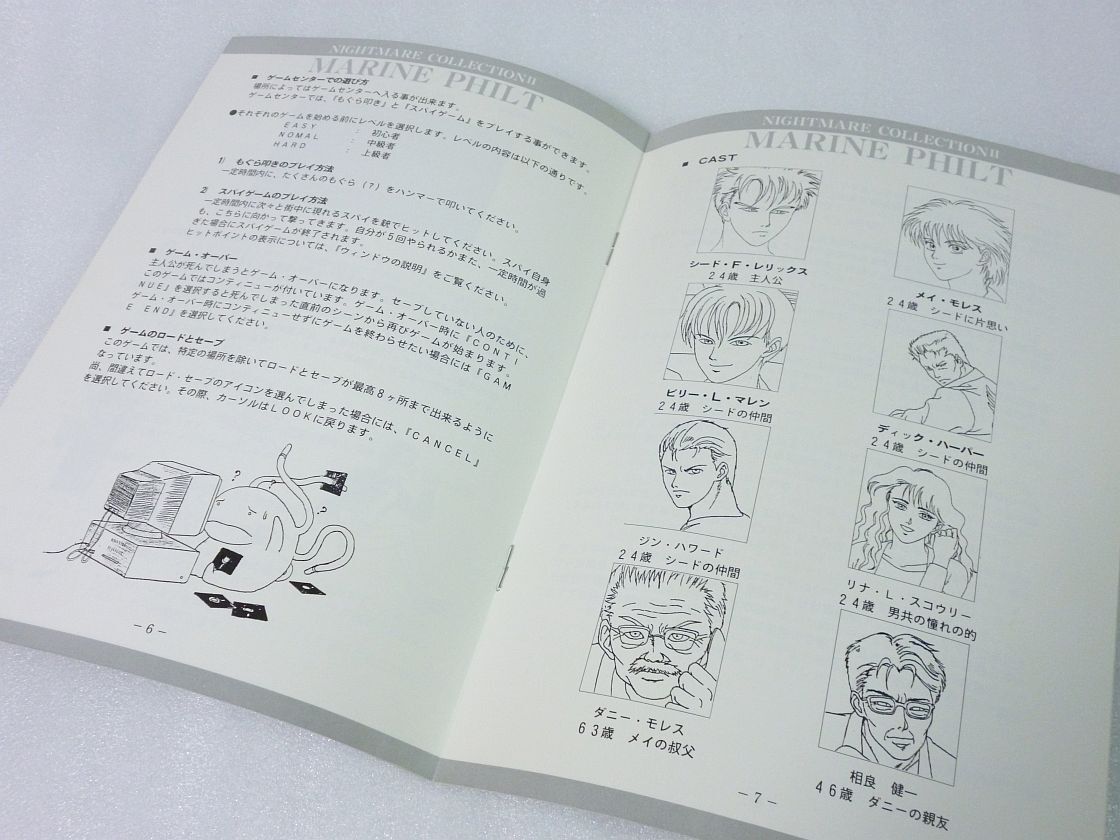 NIGHTMARE COLLECTION II
MARINE PHILT
■ ゲームセンターでの選び方
場所によってはゲームセンターへ入る事が出来ます。
ゲームセンターでは、『もぐら叩き』と『スパイゲーム』をプレイする事ができます。
●それぞれのゲームを始める前にレベルを選択します。レベルの内容は以下の通りです。
EASY : 初心者
NOMAL : 中級者
HARD : 上級者
1) もぐら叩きのプレイ方法
一定時間内に、たくさんのもぐら(?)をハンマーで叩いてください。
2) スパイゲームのプレイ方法
一定時間内に次々と街中に現れるスパイを銃でヒットしてください。スパイ自身
も、こちらに向かって撃ってきます。自分が5回やられるかまた、一定時間が過
ぎた場合にスパイゲームが終了されます。
ヒットポイントの表示については、『ウィンドウの説明』をご覧ください。
■ ゲーム・オーバー
主人公が死んでしまうとゲーム・オーバーになります。セーブしていない人のために、
このゲームではコンティニューが付いています。ゲーム・オーバー時に『CONTI
NUE』を選択すると死んでしまった直前のシーンから再びゲームが始まります。
ゲーム・オーバー時にコンティニューせずにゲームを終わらせたい場合には『GAM
E END』を選択してください。
■ ゲームのロードとセーブ
このゲームでは、特定の場所を除いてロードとセーブが最高8ヶ所まで出来るように
なっています。
尚、間違えてロード・セーブのアイコンを選んでしまった場合には、『CANCEL』
を選択してください。その際、カーソルはLOOKに戻ります。
?
?
-6-
NIGHTMARE COLLECTION II
MARINE PHILT
■ CAST
シード・F・レリックス
24歳 主人公
メイ・モレス
24歳 シードに片思い
ビリー・L・マレン
24歳 シードの仲間
ディック・ハーバー
24歳 シードの仲間
ジン・ハワード
24歳 シードの仲間
リナ・L・スコウリー
24歳 男共の憧れの的
ダニー・モレス
63歳 メイの叔父
相良 健一
46歳 ダニーの親友
-7-